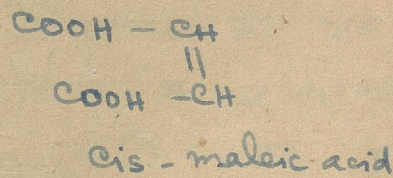 COOH – CH
||
COOH – CH
Cis - maleic acid